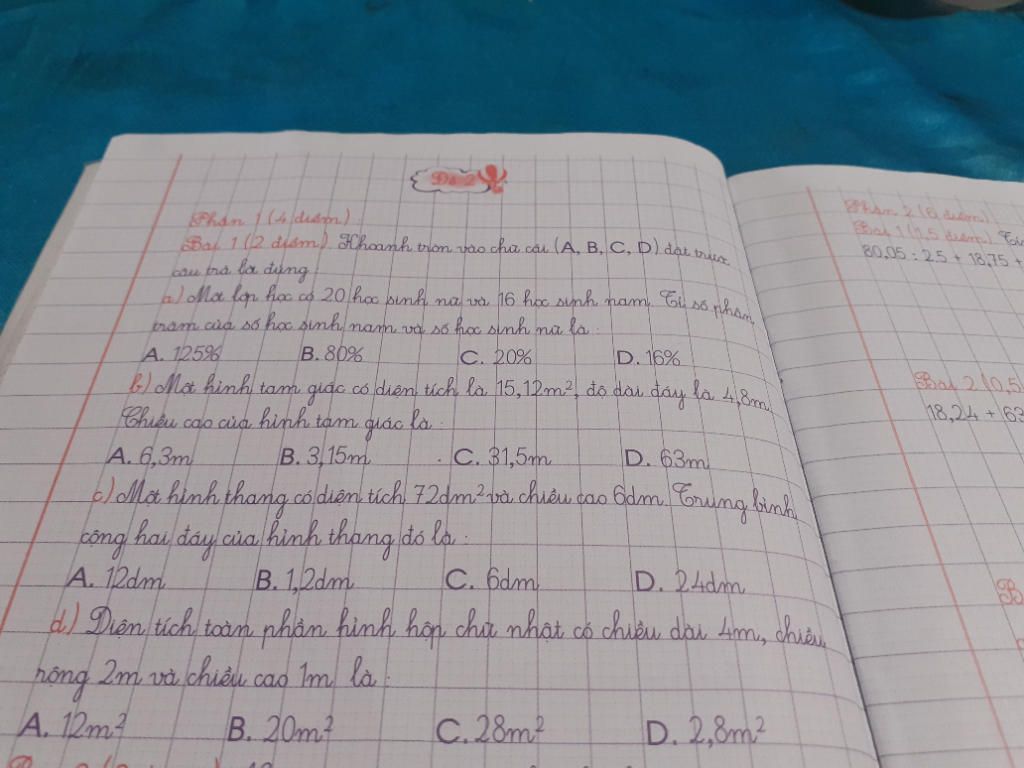 Đề 2
Phần 1 (4 điểm)
Bài 1 (2 điểm) Khoanh tròn vào chữ cái (A, B, C, D) đặt trước
câu trả lời đúng
a) Một lớp học có 20 học sinh nữ và 16 học sinh nam. Tỉ số phần
trăm của số học sinh nam và số học sinh nữ là :
A. 125% B. 80% C. 20% D. 16%
b) Một hình tam giác có diện tích là 15,12m², độ dài đáy là 4,8m
Chiều cao của hình tam giác là :
A. 6,3m B. 3,15m C. 31,5m D. 63m
c) Một hình thang có diện tích 72dm² và chiều cao 6dm. Trung bình
cộng hai đáy của hình thang đó là :
A. 12dm B. 1,2dm C. 6dm D. 24dm
d) Diện tích toàn phần hình hộp chữ nhật có chiều dài 4m, chiều
rộng 2m và chiều cao 1m là :
A. 12m² B. 20m² C. 28m² D. 2,8m²
Phần 2 (6 điểm)
Bài 1 (1,5 điểm)
80,05 : 2,5 + 18,75 +
Bài 2 (0,5
18,24 + 63